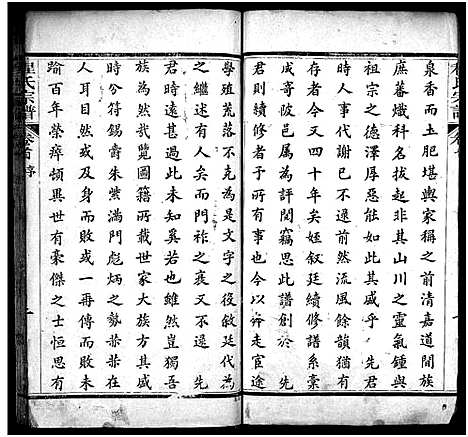 泉香而土肥堪輿家稱之前清嘉道間族
庶蕃熾科名拔起非其山川之靈氣鍾與
祖宗之德澤厚惡能若是之感乎 先君
人事代謝已不逮前然流風餘韻猶有
存者今又四十年矣姪敘廷續修譜系稾
成寄陂邑屬為評閱竊思此譜創於 先
君則續修有所有事也今以奔走宦途
學殖荒落不克為是文字之役敘廷代為
之繼述有人而門祚之衰又不大可
君時遠甚過此未知奚若也雖然豈獨吾
族為然哉覽圖籍所載世家大族方其
時分符錫爵朱紫滿門彪炳之勢恭恭在
人耳目或身而敗或一再傳而敗未
踰百年榮瘁頓異世有豪傑之士恒思有
程氏宗譜
卷首 序